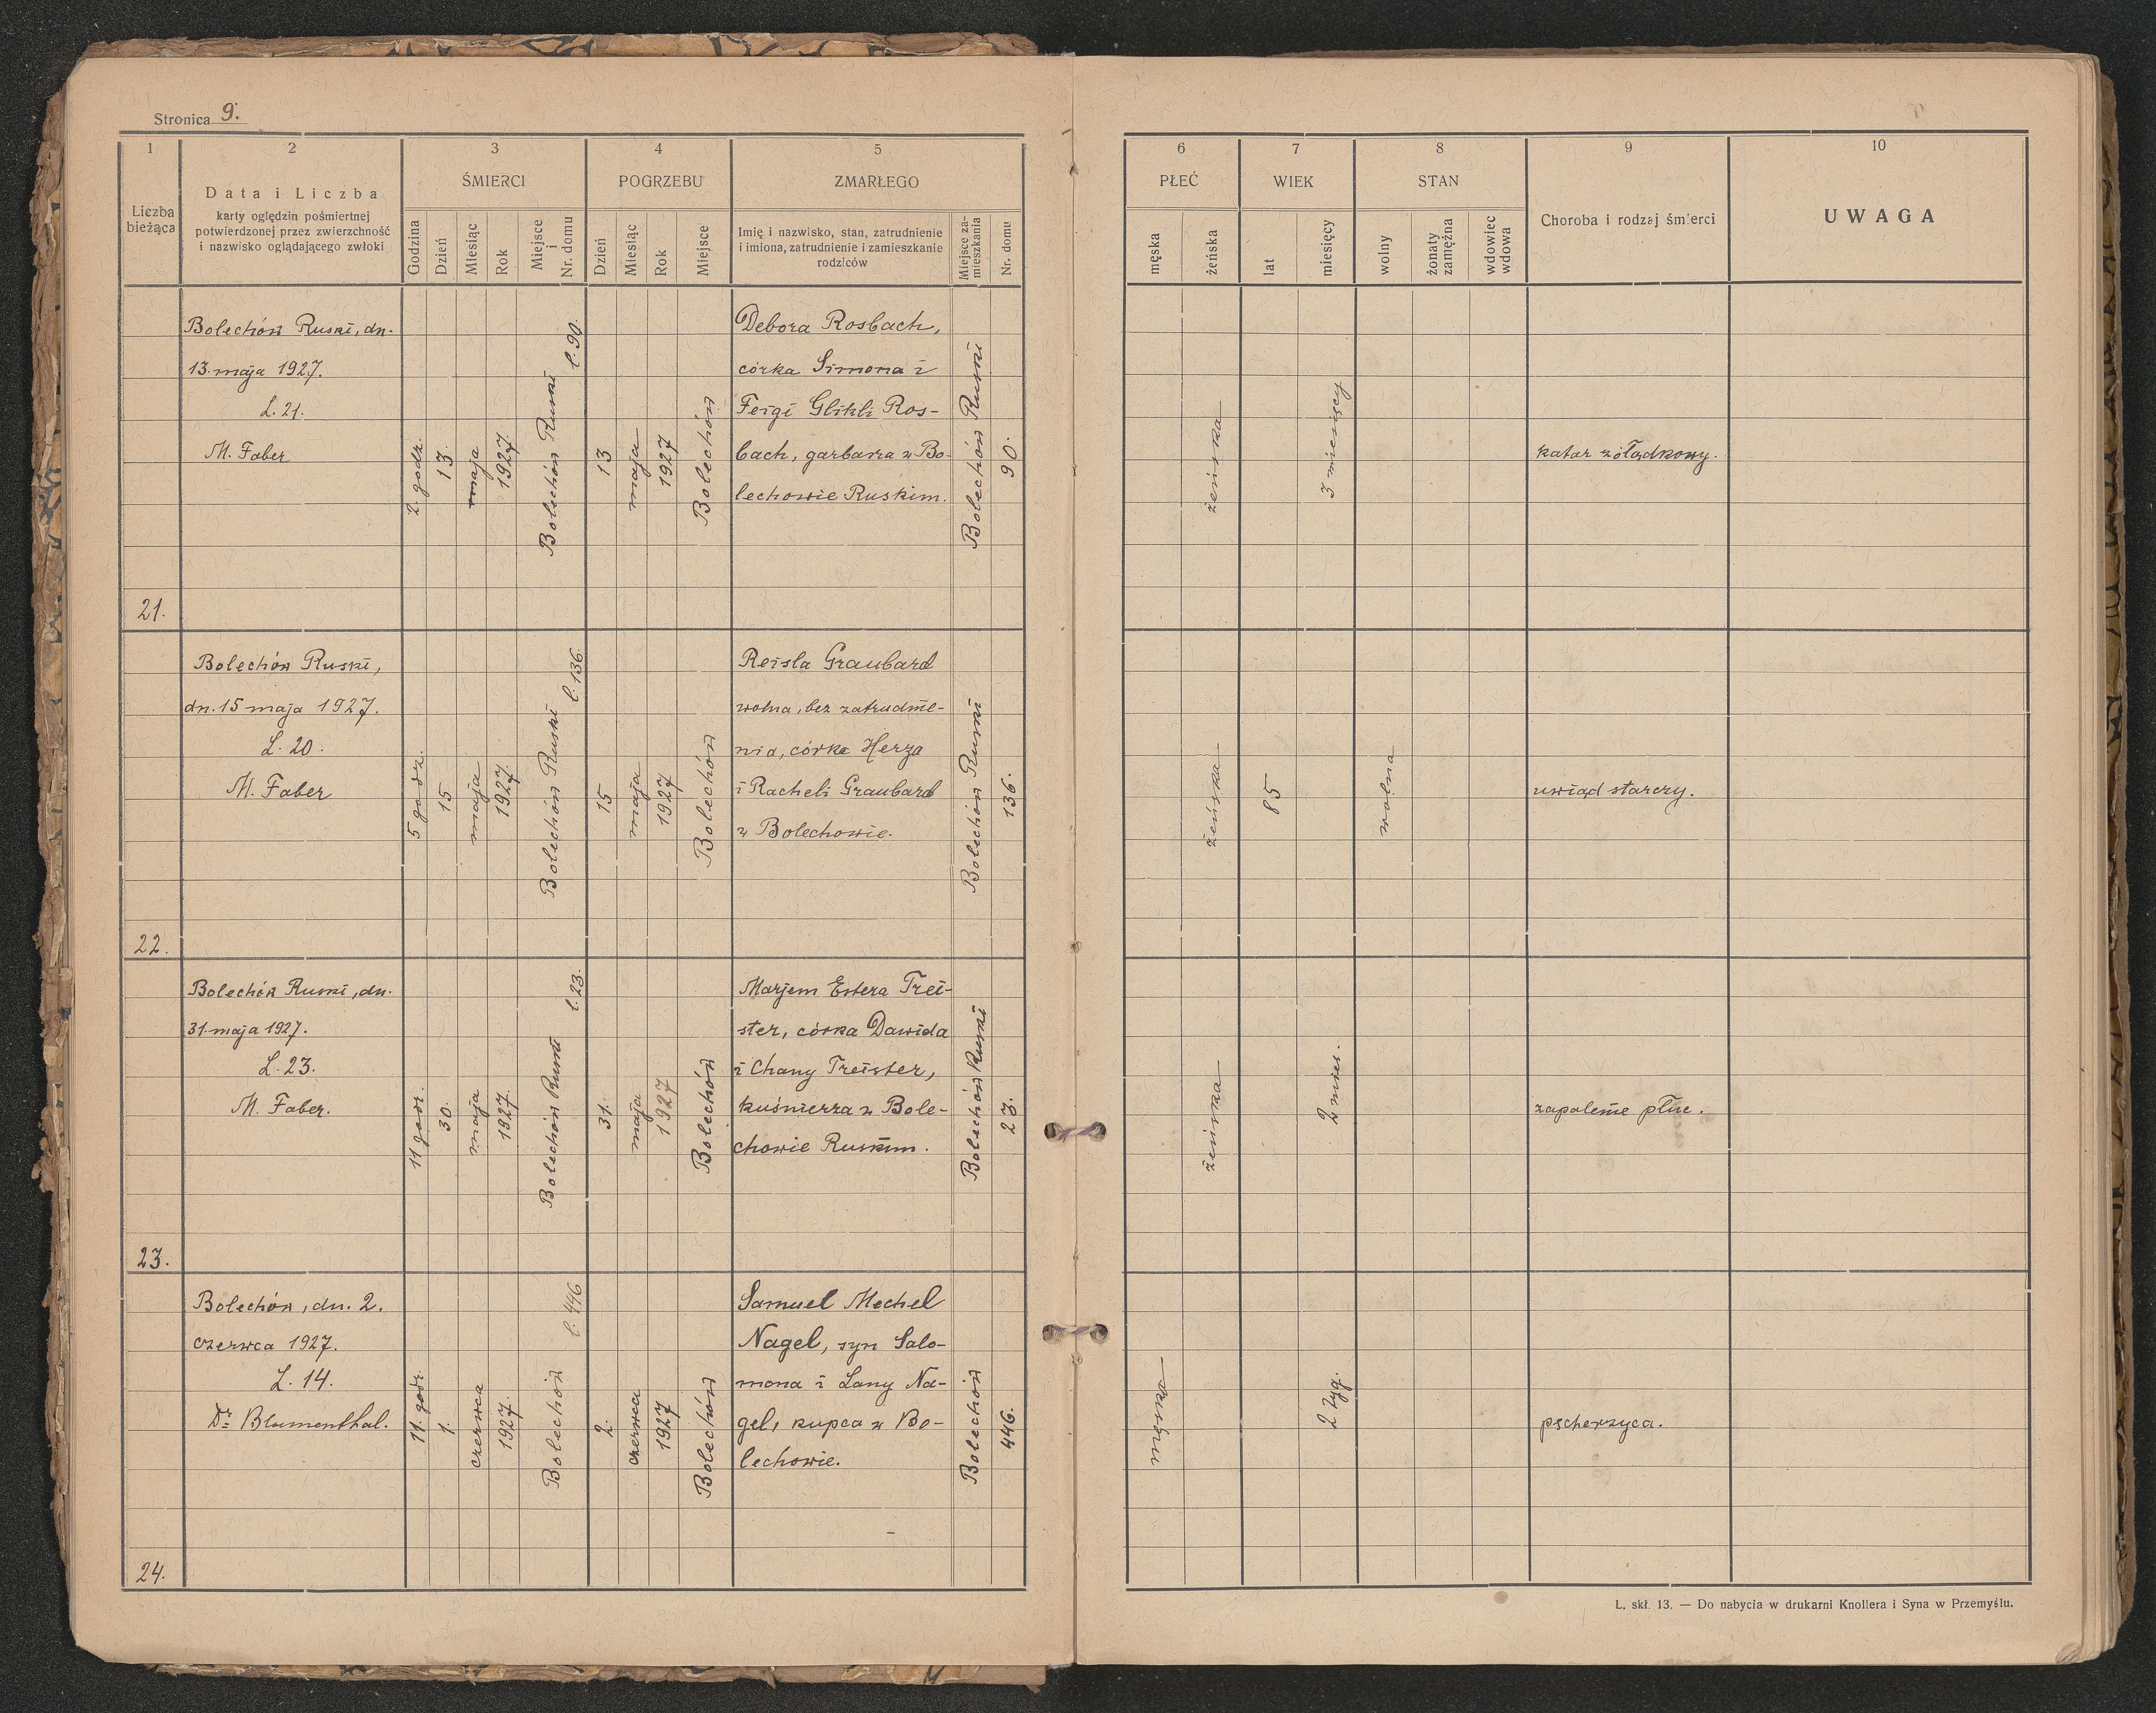 Stronica 9.
1 2 3 4 5
Liczba bieżąca
Data i Liczba
karty oględzin pośmiertnej
potwierdzonej przez zwierzchność
i nazwisko oglądającego zwłoki
ŚMIERCI
Godzina
Dzień
Miesiąc
Rok
Miejsce i Nr. domu
POGRZEBU
Dzień
Miesiąc
Rok
Miejsce
ZMARŁEGO
Imię i nazwisko, stan, zatrudnienie
i imiona, zatrudnienie i zamieszkanie
rodziców
Miejsce za-
mieszkania
Nr. domu
6 7 8 9 10
PŁEĆ
męska
żeńska
WIEK
lat
miesięcy
STAN
wolny
żonaty
zamężna
wdowiec
wdowa
Choroba i rodzaj śmierci
UWAGA
21.
Bolechów Ruski, dn.
13. maja 1927.
L. 21.
M. Faber
2. godz.
13.
maja
1927.
Bolechów Ruski
l. 90.
13
maja
1927
Bolechów
Debora Rosbach,
córka Simona i
Feigi Glikli Ros-
bach, garbarza w Bo-
lechowie Ruskim.
Bolechów Ruski
90.
żeńska
3 miesięcy
katar żołądkowy.
22.
Bolechów Ruski,
dn. 15 maja 1927.
L. 20.
M. Faber
5 godz.
15
maja
1927.
Bolechów Ruski
l. 136.
15
maja
1927
Bolechów
Reisla Graubard
wolna, bez zatrudnie-
nia, córka Herza
i Racheli Graubard
w Bolechowie.
Bolechów Ruski
136.
żeńska
85
wolna
uwiąd starczy.
23.
Bolechów Ruski, dn.
31. maja 1927.
L. 23.
M. Faber.
11 godz.
30.
maja
1927.
Bolechów Ruski
l. 23.
31.
maja
1927
Bolechów
Marjem Estera Trei-
ster, córka Dawida
i Chany Treister,
kuśnierza w Bole-
chowie Ruskim.
Bolechów Ruski
23.
żeńska
2 mies.
zapalenie płuc.
24.
Bolechów, dn. 2.
czerwca 1927.
L. 14.
Dr Blumenthal.
11. godz.
1.
czerwca
1927.
Bolechów
l. 446
2.
czerwca
1927
Bolechów
Samuel Mechel
Nagel, syn Salo-
mona i Lany Na-
gel, kupca w Bo-
lechowie.
Bolechów
446.
męska
2 tyg.
pęcherzyca.
L. skł. 13. — Do nabycia w drukarni Knollera i Syna w Przemyślu.